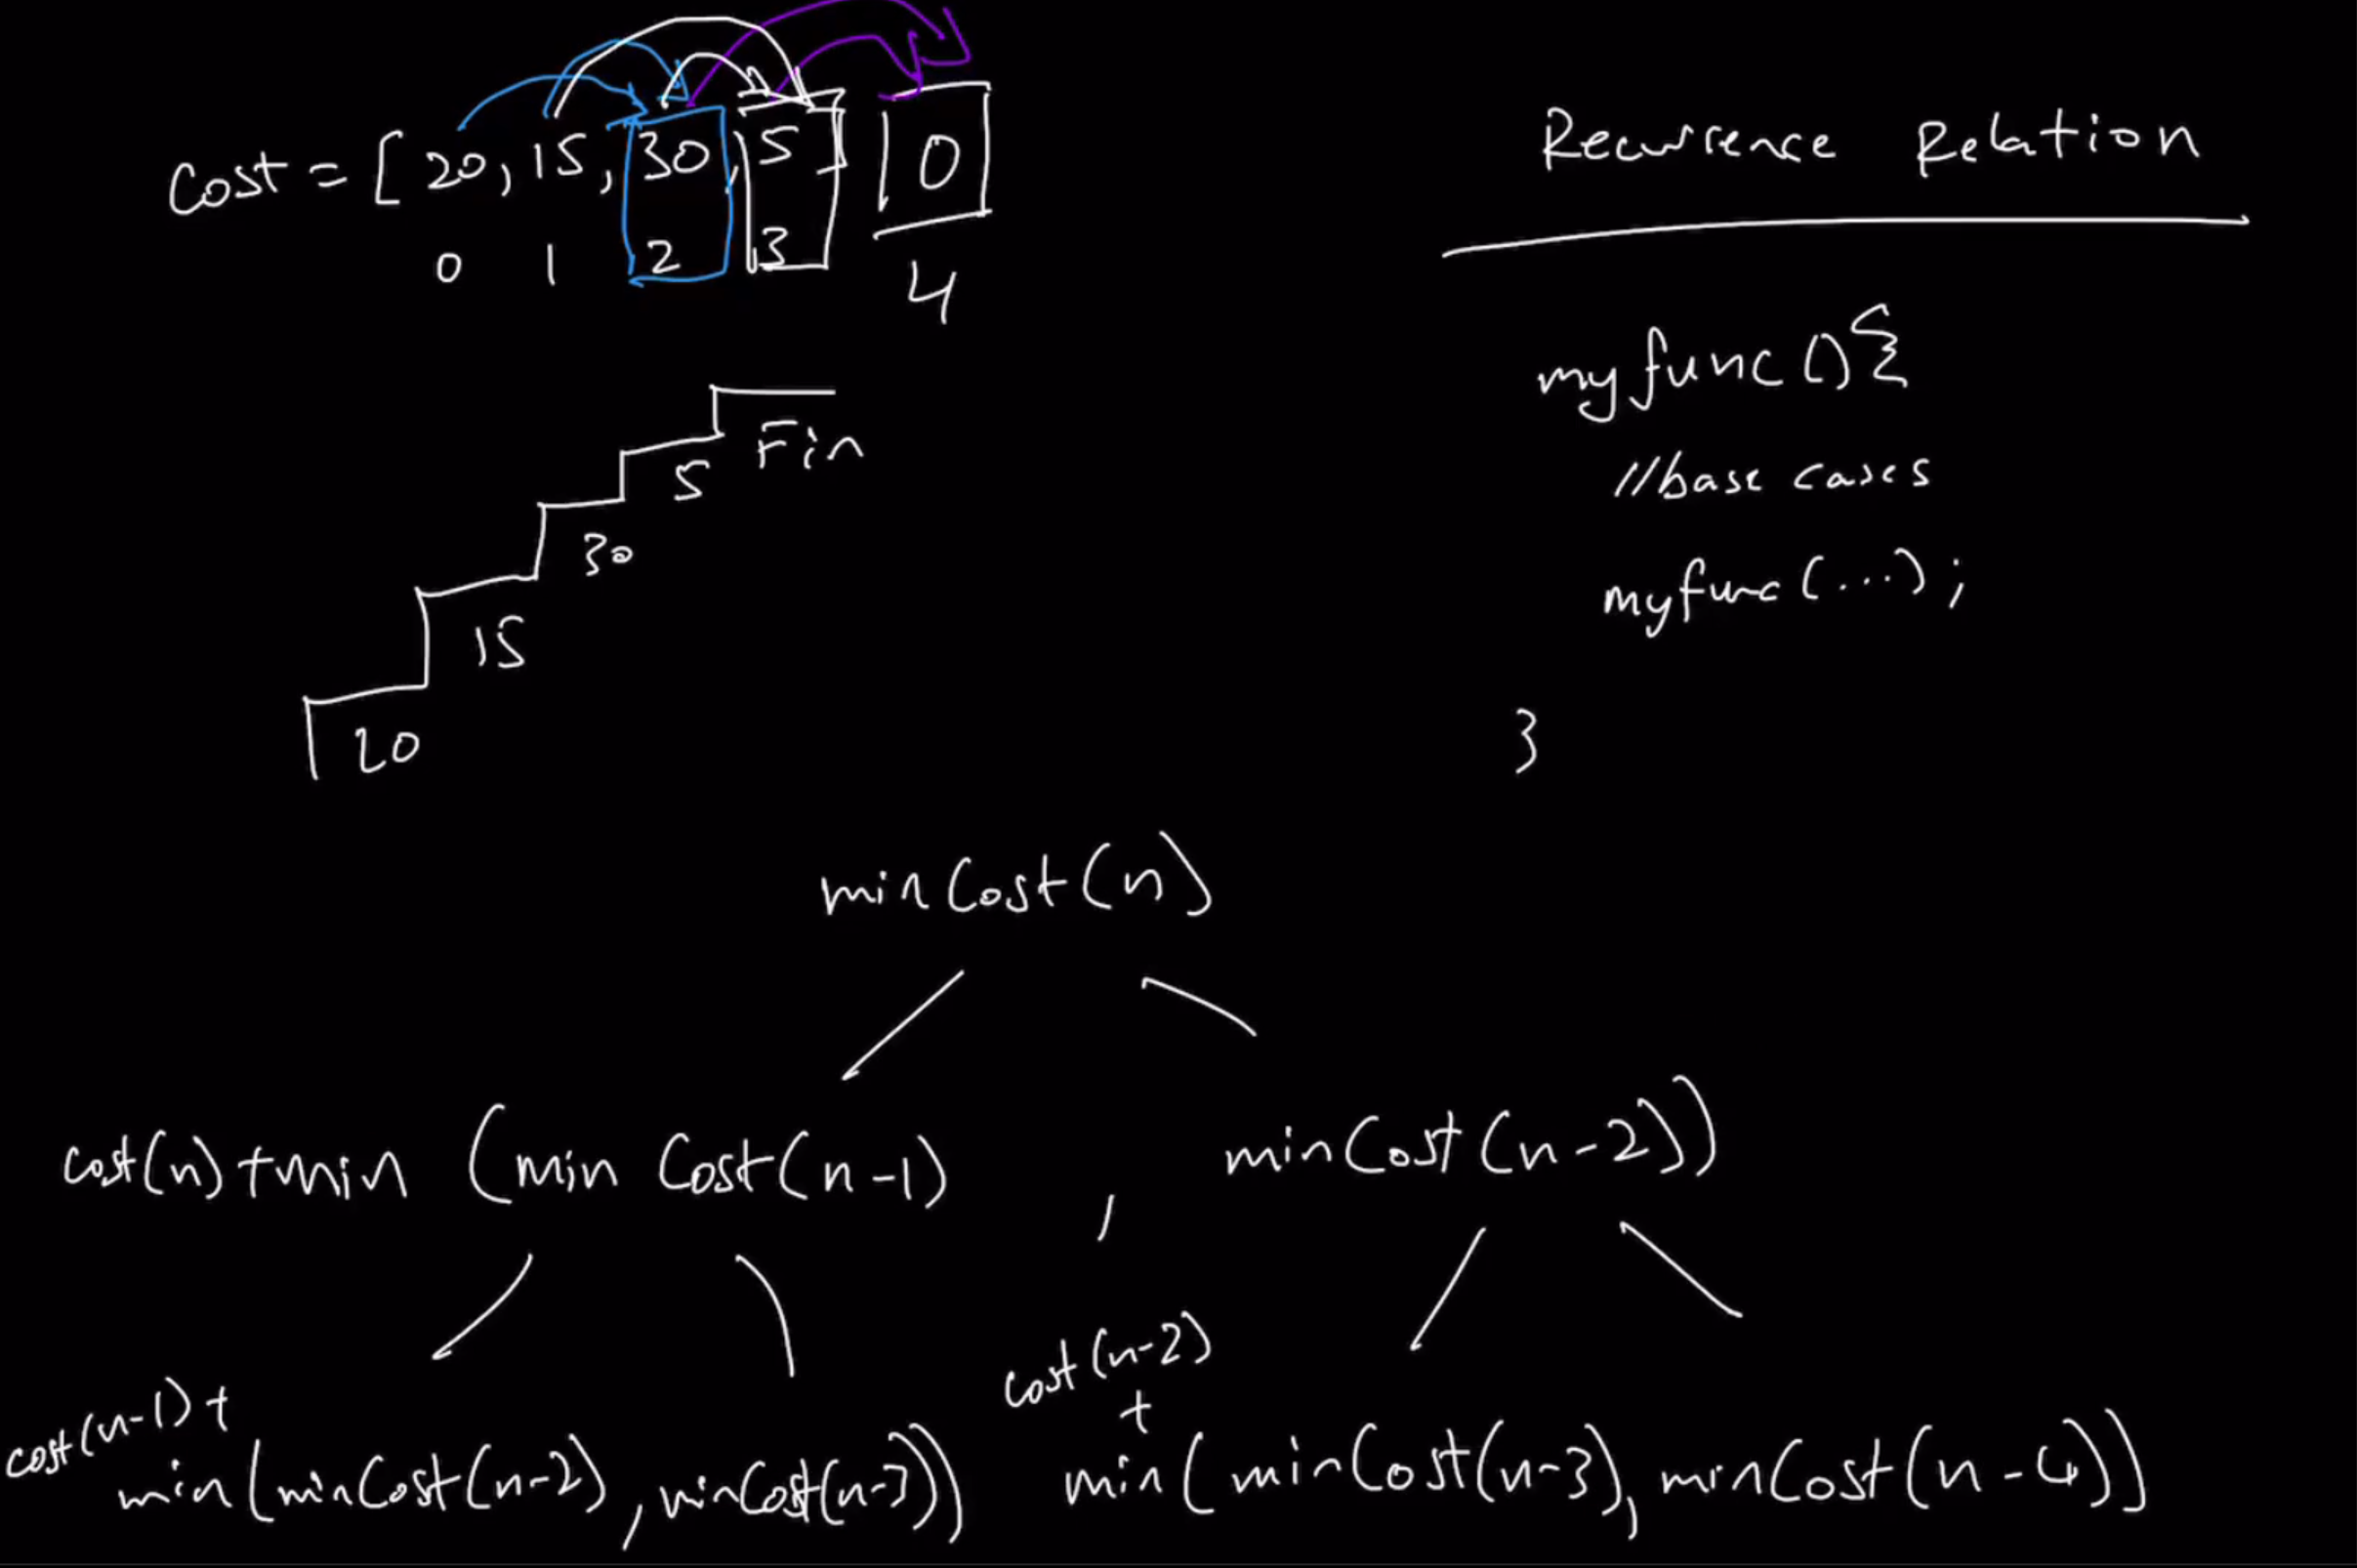 Cost = [20, 15, 30, 5] 0
0 1 2 3 4
Recurrence Relation
myfunc(){
//base cases
myfunc(...);
}
Fin
5
30
15
20
minCost(n)
cost(n)+min (min Cost(n-1) , minCost(n-2))
cost(n-1)+
min(minCost(n-2), minCost(n-3))
cost(n-2)
+
min(minCost(n-3), minCost(n-4))